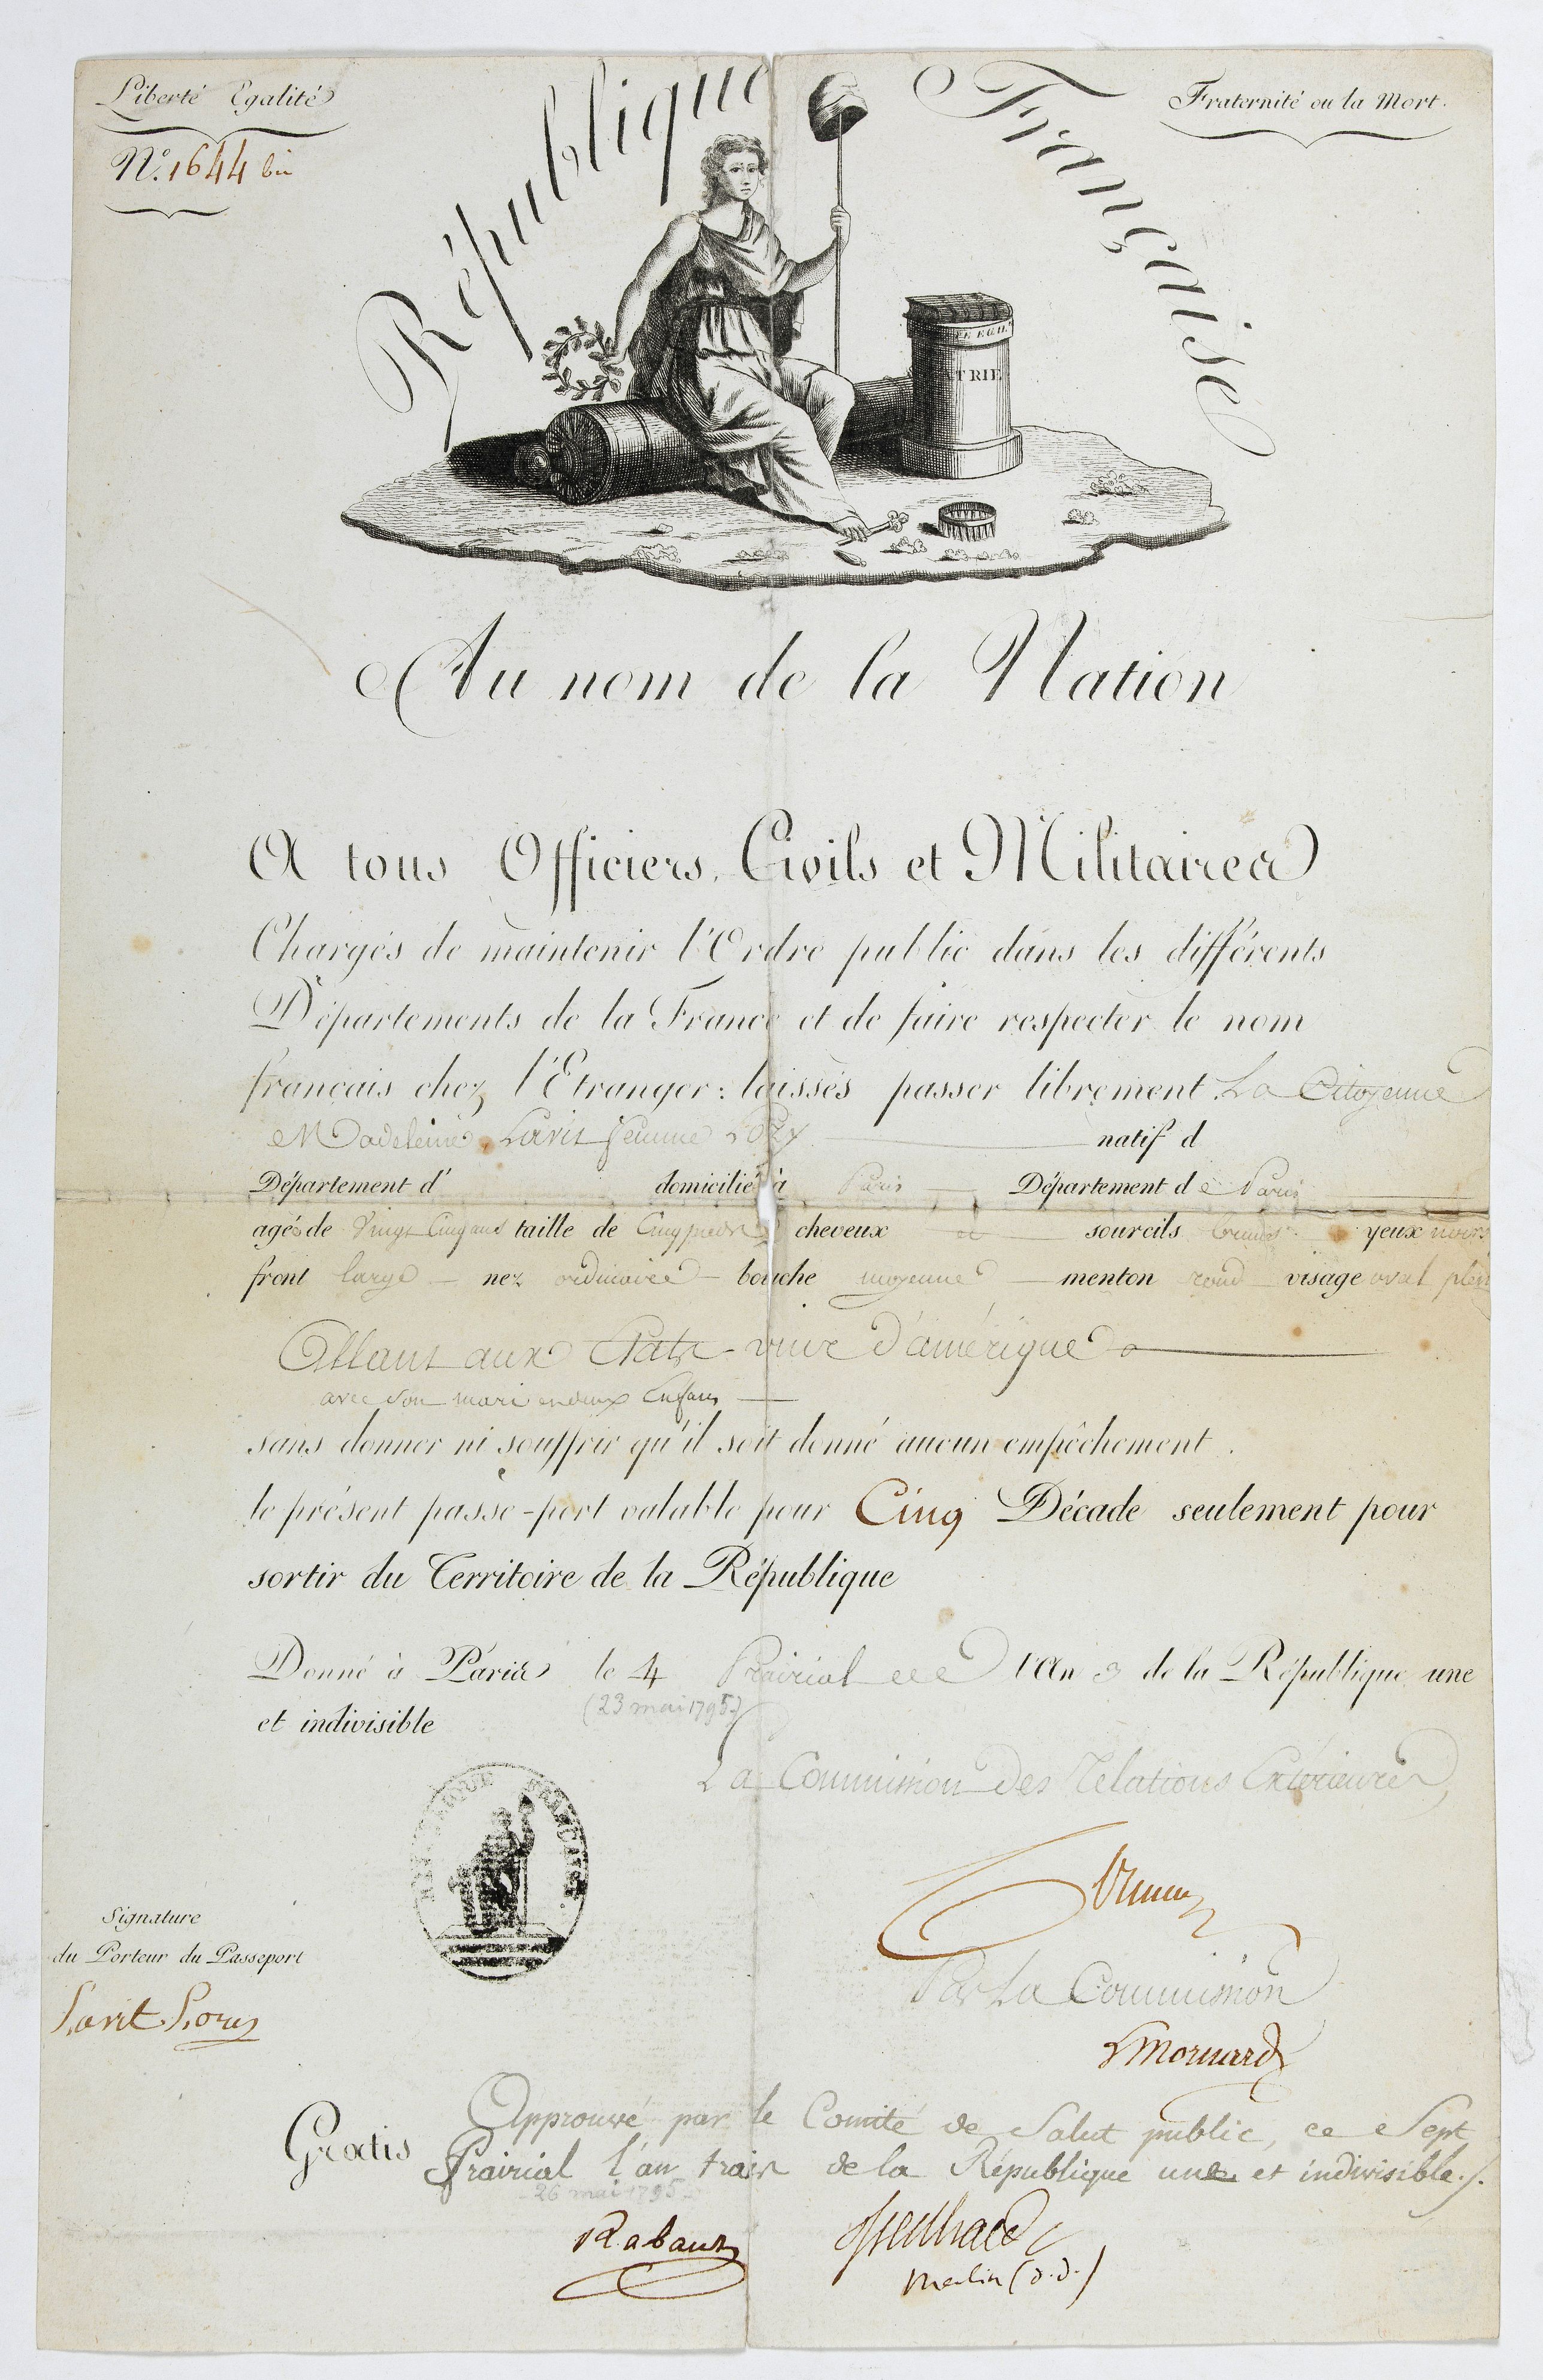 Liberté Egalité
Fraternité ou la Mort.
N.° 1644 bis
République Française
TÉ EGAL
ATRIE
Au nom de la Nation
A tous Officiers, Civils et Militaires
Chargés de maintenir l'Ordre public dans les différents
Départements de la France et de faire respecter le nom
français chez l'Etranger : laissés passer librement La Citoyenne
Madeleine Lavit femme Lory natif d
Département d' domicilié à Paris Département de Paris
agés de Vingt Cinq ans taille de Cinq pieds cheveux et sourcils bruns yeux noirs
front large nez ordinaire bouche moyenne menton rond visage oval plein
Allant aux Etats-unis d'amérique
avec son mari et deux Enfans
sans donner ni souffrir qu'il soit donné aucun empêchement.
le présent passe-port valable pour Cinq Décade seulement pour
sortir du Territoire de la République
Donné à Paris le 4 Prairial l'An 3 de la République une
(23 mai 1795)
et indivisible
La Commission des Relations Extérieures,
REPUBLIQUE FRANÇAISE.
Signature
du Porteur du Passeport
Lavit Lory
Par La Commission
Gratis
Approuvé par le Comité de Salut public, ce Sept
Prairial l'an trois de la République une et indivisible./.
26 mai 1795
Rabaut
Treilhard
Merlin (d.d.)